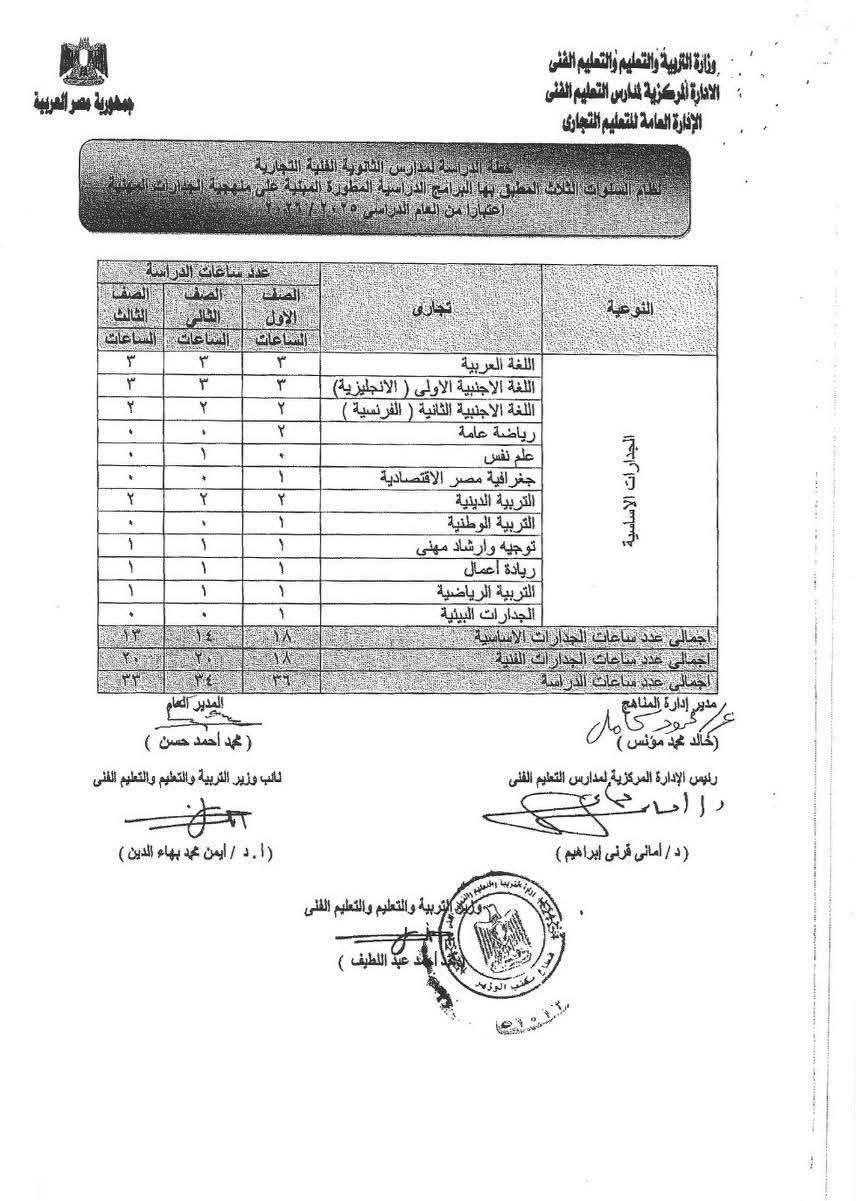 وزارة التربية والتعليم والتعليم الفنى
الادارة المركزية لمدارس التعليم الفنى
الإدارة العامة للتعليم التجارى
جمهورية مصر العربية
خطة الدراسة لمدارس الثانوية الفنية التجارية
نظام السنوات الثلاث المطبق بها البرامج الدراسية المطورة المبنية على منهجية الجدارات المهنية
اعتبارا من العام الدراسى ٢٠٢٥ / ٢٠٢٦
النوعية تجارى عدد ساعات الدراسة
الصف الاول الصف الثانى الصف الثالث
الساعات الساعات الساعات
الجدارات الاساسية
اللغة العربية ٣ ٣ ٣
اللغة الاجنبية الاولى ( الانجليزية) ٣ ٣ ٣
اللغة الاجنبية الثانية ( الفرنسية ) ٢ ٢ ٢
رياضة عامة ٢ ٠ ٠
علم نفس ٠ ١ ٠
جغرافية مصر الاقتصادية ١ ٠ ٠
التربية الدينية ٢ ٢ ٢
التربية الوطنية ١ ٠ ٠
توجيه وارشاد مهنى ١ ١ ١
ريادة أعمال ١ ١ ١
التربية الرياضية ١ ١ ١
الجدارات البيئية ١ ٠ ٠
اجمالى عدد ساعات الجدارات الاساسية ١٨ ١٤ ١٣
اجمالى عدد ساعات الجدارات الفنية ١٨ ٢٠ ٢٠
اجمالى عدد ساعات الدراسة ٣٦ ٣٤ ٣٣
مدير إدارة المناهج
(خالد محمد مؤنس )
المدير العام
( محمد أحمد حسن )
رئيس الإدارة المركزية لمدارس التعليم الفنى
( د/ أمانى قرنى إبراهيم )
نائب وزير التربية والتعليم والتعليم الفنى
( أ. د / أيمن محمد بهاء الدين )
وزير التربية والتعليم والتعليم الفنى
أحمد عبد اللطيف )
قطاع مكتب الوزير